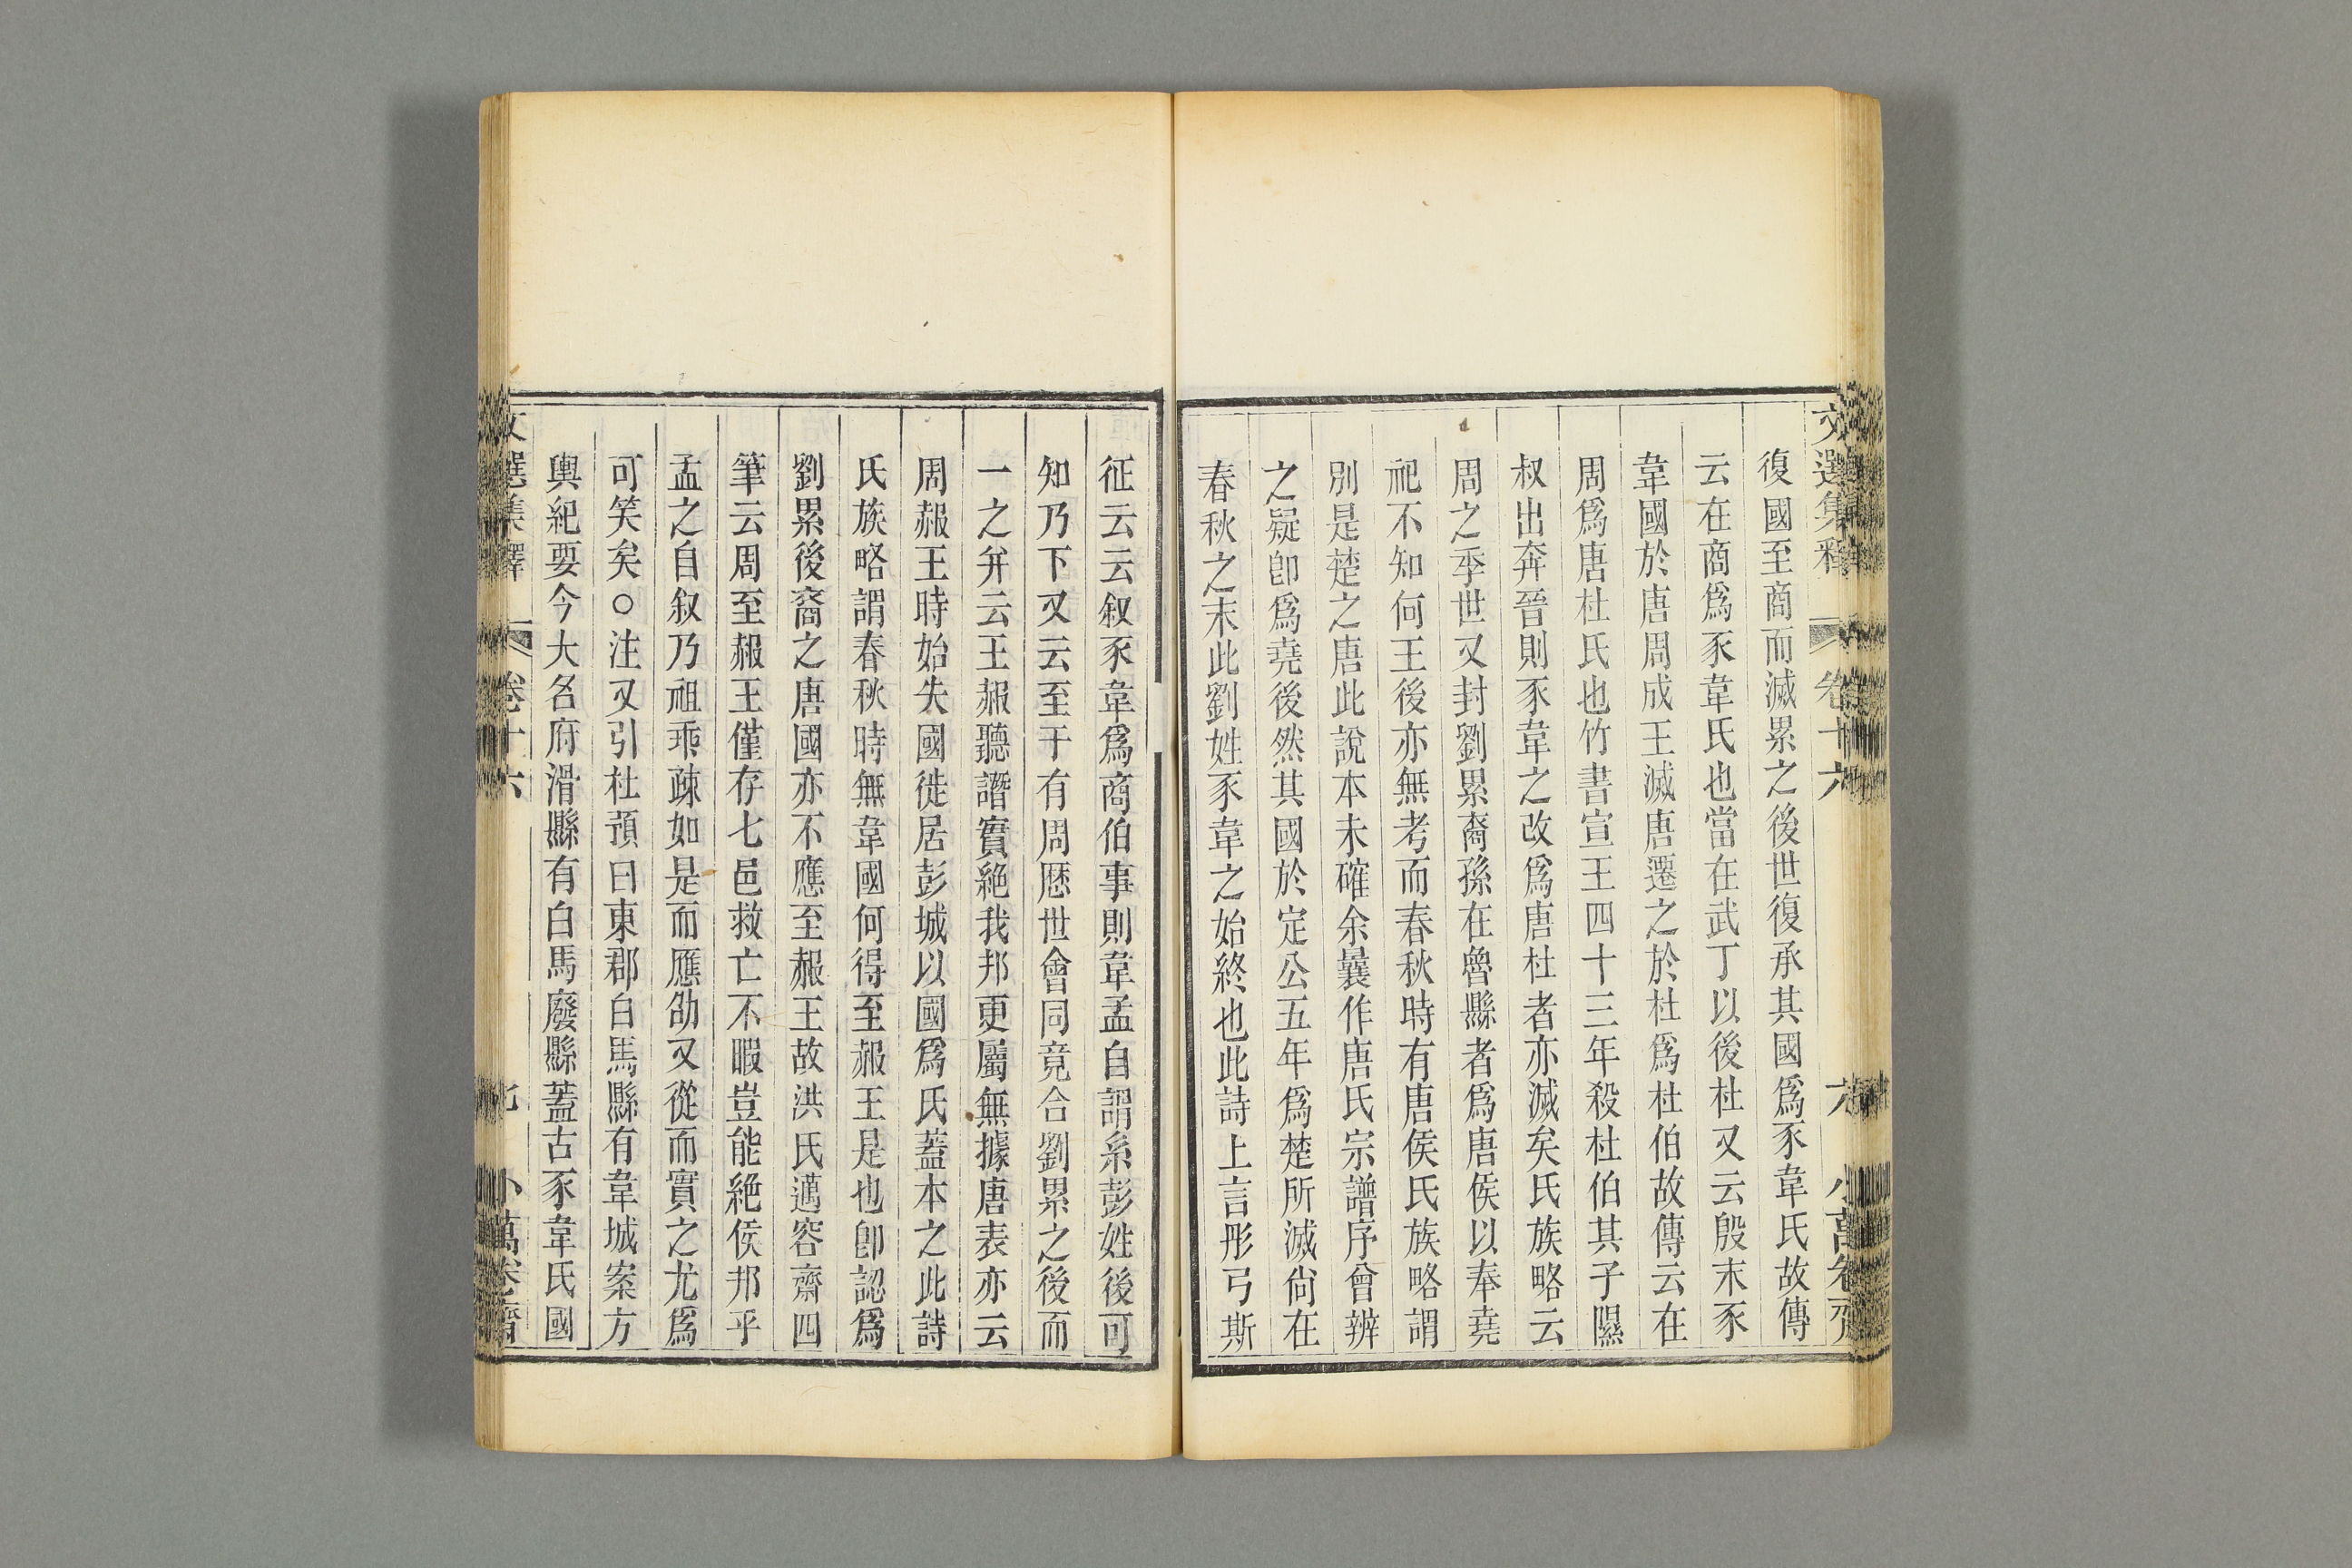 文選集釋 卷十六 六 小萬卷齋
復國至商而滅累之後世復承其國爲豕韋氏故傳
云在商爲豕韋氏也當在武丁以後杜又云殷末豕
韋國於唐周成王滅唐遷之於杜爲杜伯故傳云在
周爲唐杜氏也竹書宣王四十三年殺杜伯其子隰
叔出奔晉則豕韋之改爲唐杜者亦滅矣氏族略云
周之季世又封劉累裔孫在魯縣者爲唐侯以奉堯
祀不知何王後亦無考而春秋時有唐侯氏族略謂
別是楚之唐此說本未確余曩作唐氏宗譜序曾辨
之疑卽爲堯後然其國於定公五年爲楚所滅尙在
春秋之末此劉姓豕韋之始終也此詩上言彤弓斯
征云云叙豕韋爲商伯事則韋孟自謂系彭姓後可
知乃下又云至于有周歷世會同竟合劉累之後而
一之弁云王赧聽譖實絶我邦更屬無據唐表亦云
周赧王時始失國徙居彭城以國爲氏蓋本之此詩
氏族略謂春秋時無韋國何得至赧王是也卽認爲
劉累後裔之唐國亦不應至赧王故洪氏邁容齋四
筆云周至赧王僅存七邑救亡不暇豈能絶侯邦乎
孟之自叙乃祖乖疎如是而應劭又從而實之尤爲
可笑矣○注又引杜預曰東郡白馬縣有韋城案方
輿紀要今大名府滑縣有白馬廢縣蓋古豕韋氏國
文選集釋 卷十六 七 小萬卷齋